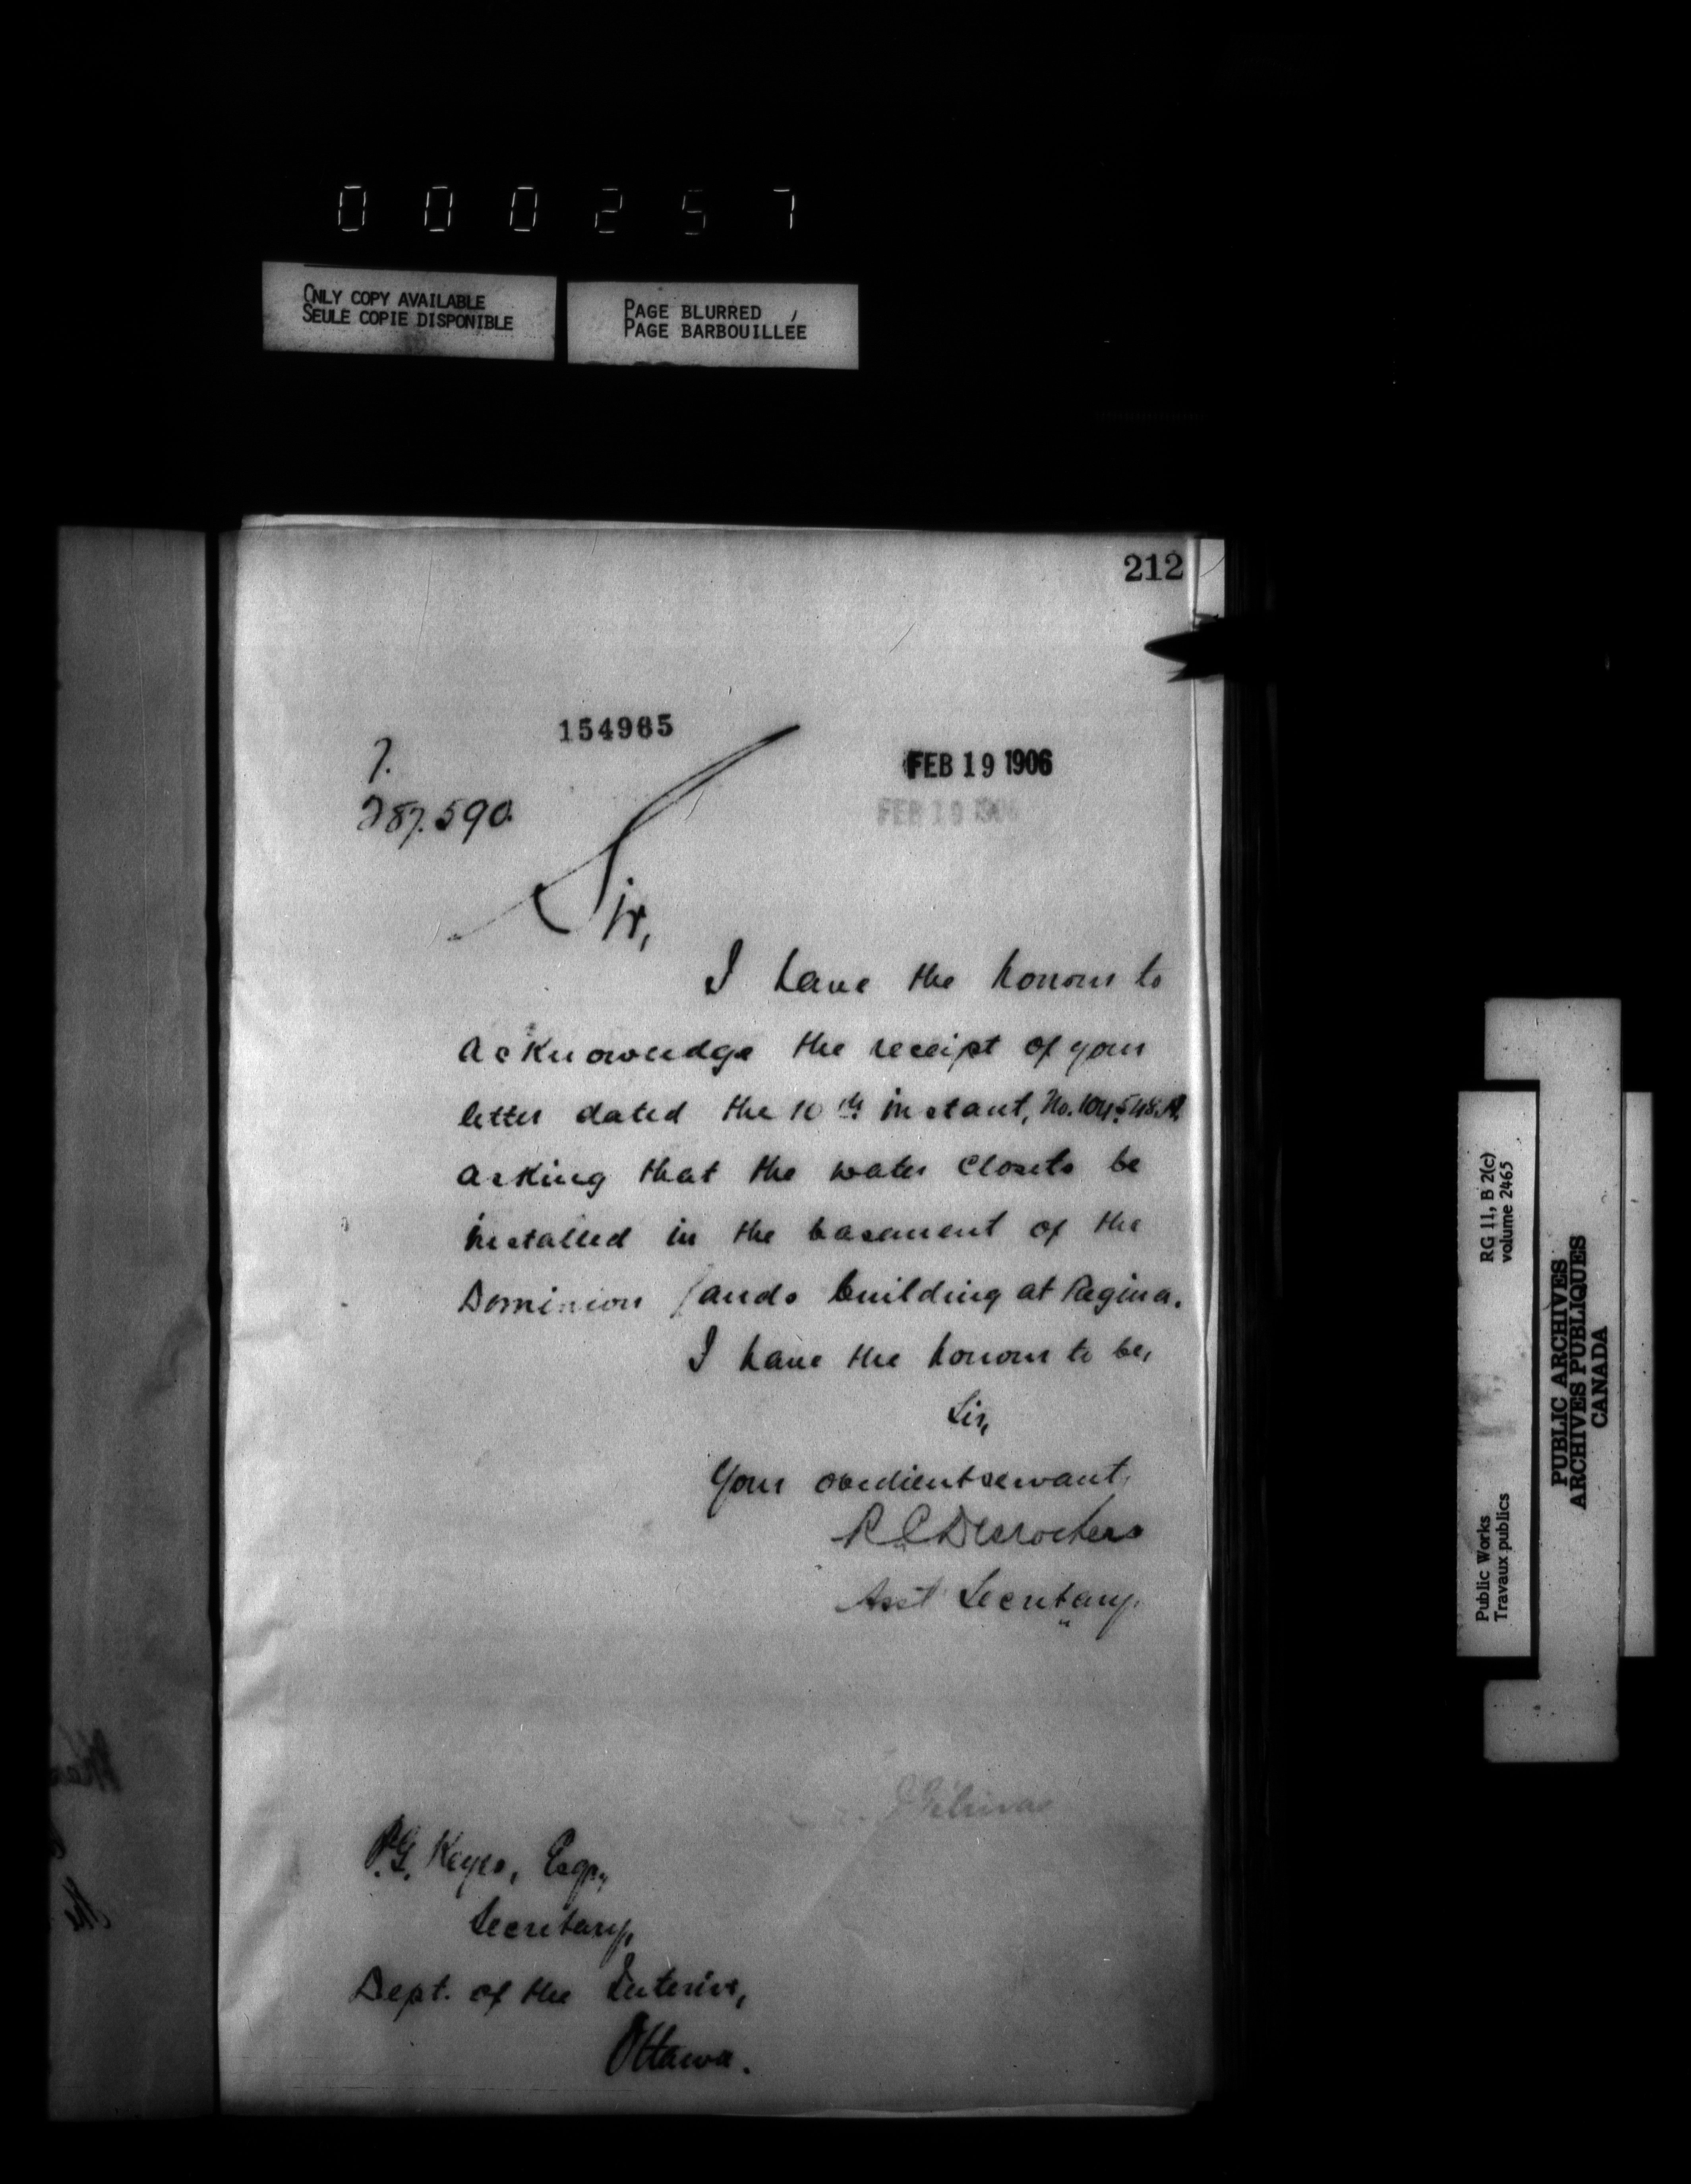 000257
ONLY COPY AVAILABLE
SEULE COPIE DISPONIBLE
PAGE BLURRED
PAGE BARBOUILLÉE
212
154965
FEB 19 1906
FEB 19 1906
7.
287.590.
Sir,
I have the honour to
acknowledge the receipt of your
letter dated the 10th instant, No.
asking that the water closets be
installed in the basement of the
Dominion Lands building at Regina.
I have the honour to be,
Sir,
Your obedient servant,
R C Desrochers
Asst Secretary.
P.G. Keyes, Esqr.,
Secretary,
Dept. of the Interior,
Ottawa.
RG 11, B 2(c)
volume 2465
Public Works
Travaux publics
PUBLIC ARCHIVES
ARCHIVES PUBLIQUES
CANADA